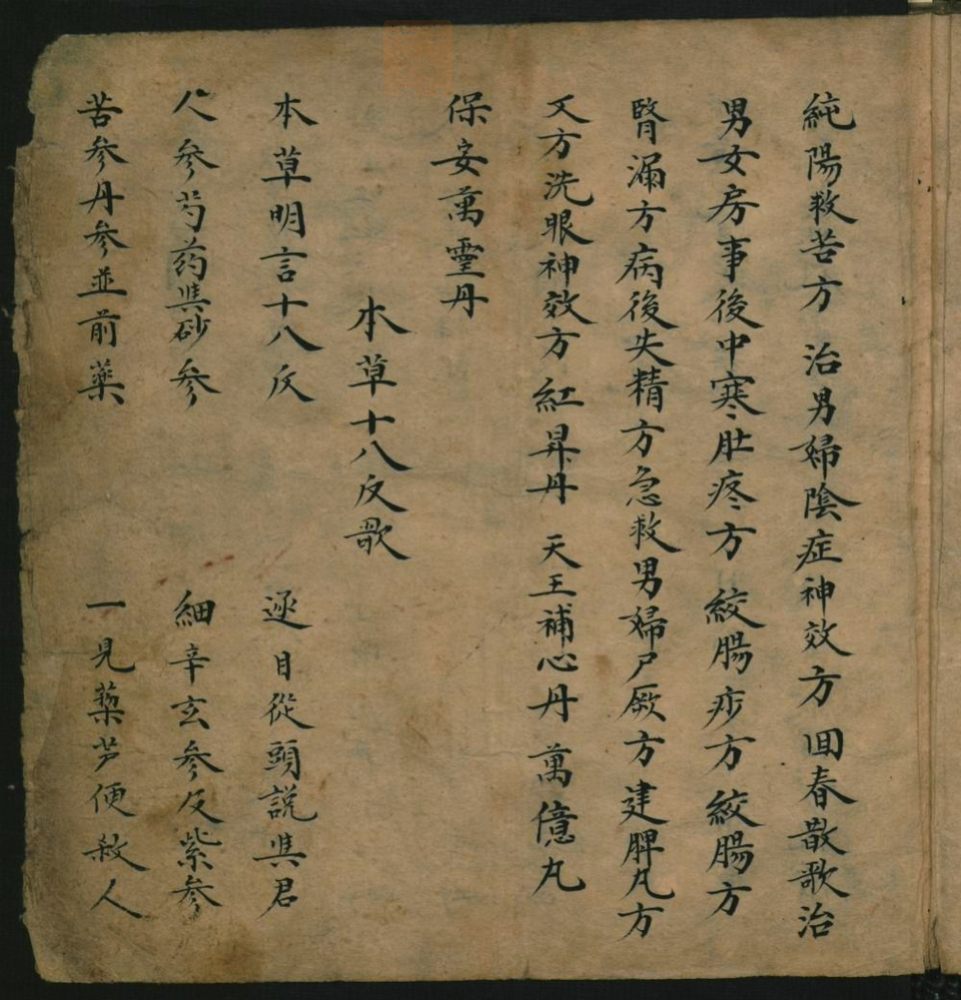 純陽救苦方 治男婦陰症神效方 回春散歌治
男女房事後中寒肚疼方 絞腸痧方 絞腸方
腎漏方病後失精方急救男婦尸厥方建脾丸方
又方洗眼神效方 紅昇丹 天王補心丹 萬億丸
保安萬靈丹
本草十八反歌
本草明言十八反 逐目從頭說與君
人參芍药與砂參 細辛玄參及紫參
苦參丹參並前藥 一見藜芦便殺人